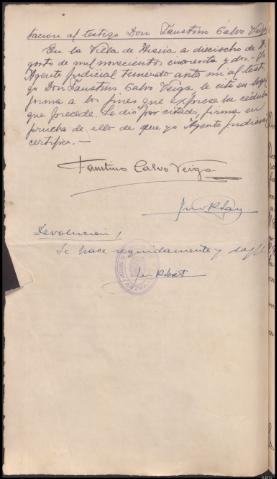 tación al testigo Don Faustino Calvo Veiga
En la Villa de a dieciocho de A
gosto de mil novecientos cuarenta y dos. Yo
Agente Judicial teniendo ante mí al testi
go Don Faustino Calvo Veiga, le cité en
forma a los fines que expresa la cédula
que precede. Se dio por citado, firma en
prueba de ello de que yo Agente Judicial
certifico. —
Faustino Calvo Veiga
Devolución /
Se hace seguidamente y doy fe